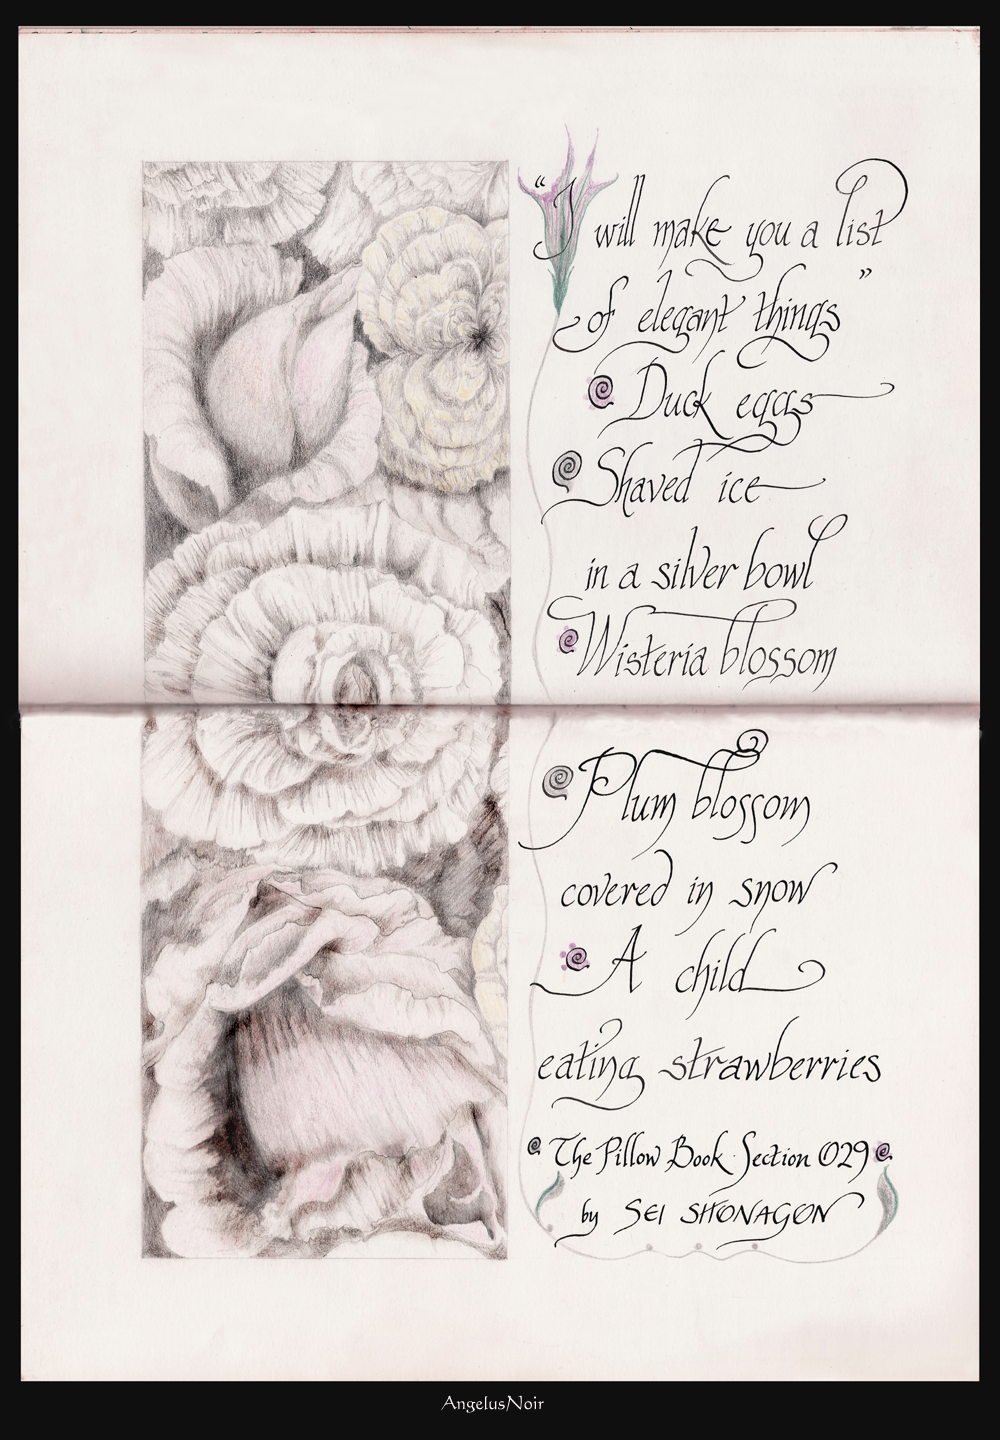 “I will make you a list
of elegant things”
Duck eggs
Shaved ice
in a silver bowl
Wisteria blossom
Plum blossom
covered in snow
A child
eating strawberries
The Pillow Book Section 029
by SEI SHONAGON
AngelusNoir